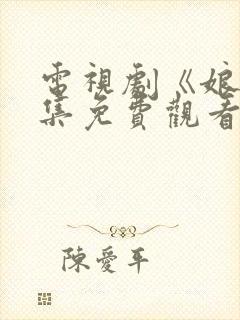 電視劇《娘
集免費觀看
陳愛平